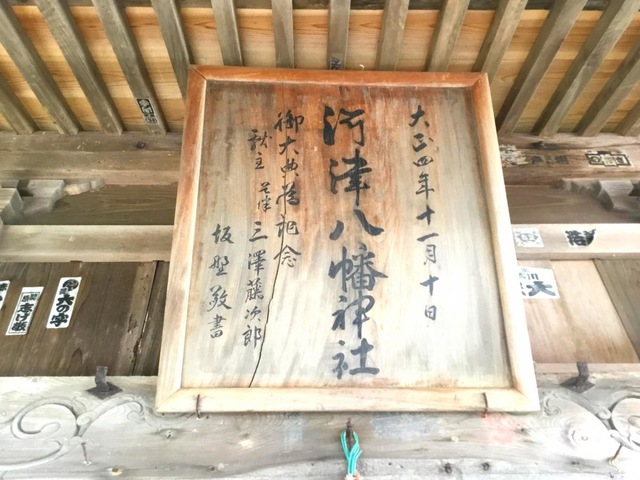 大正四年十一月十日
河津八幡神社
御大典為記念
献主 三澤藤次郎
坂野敬書
大の字